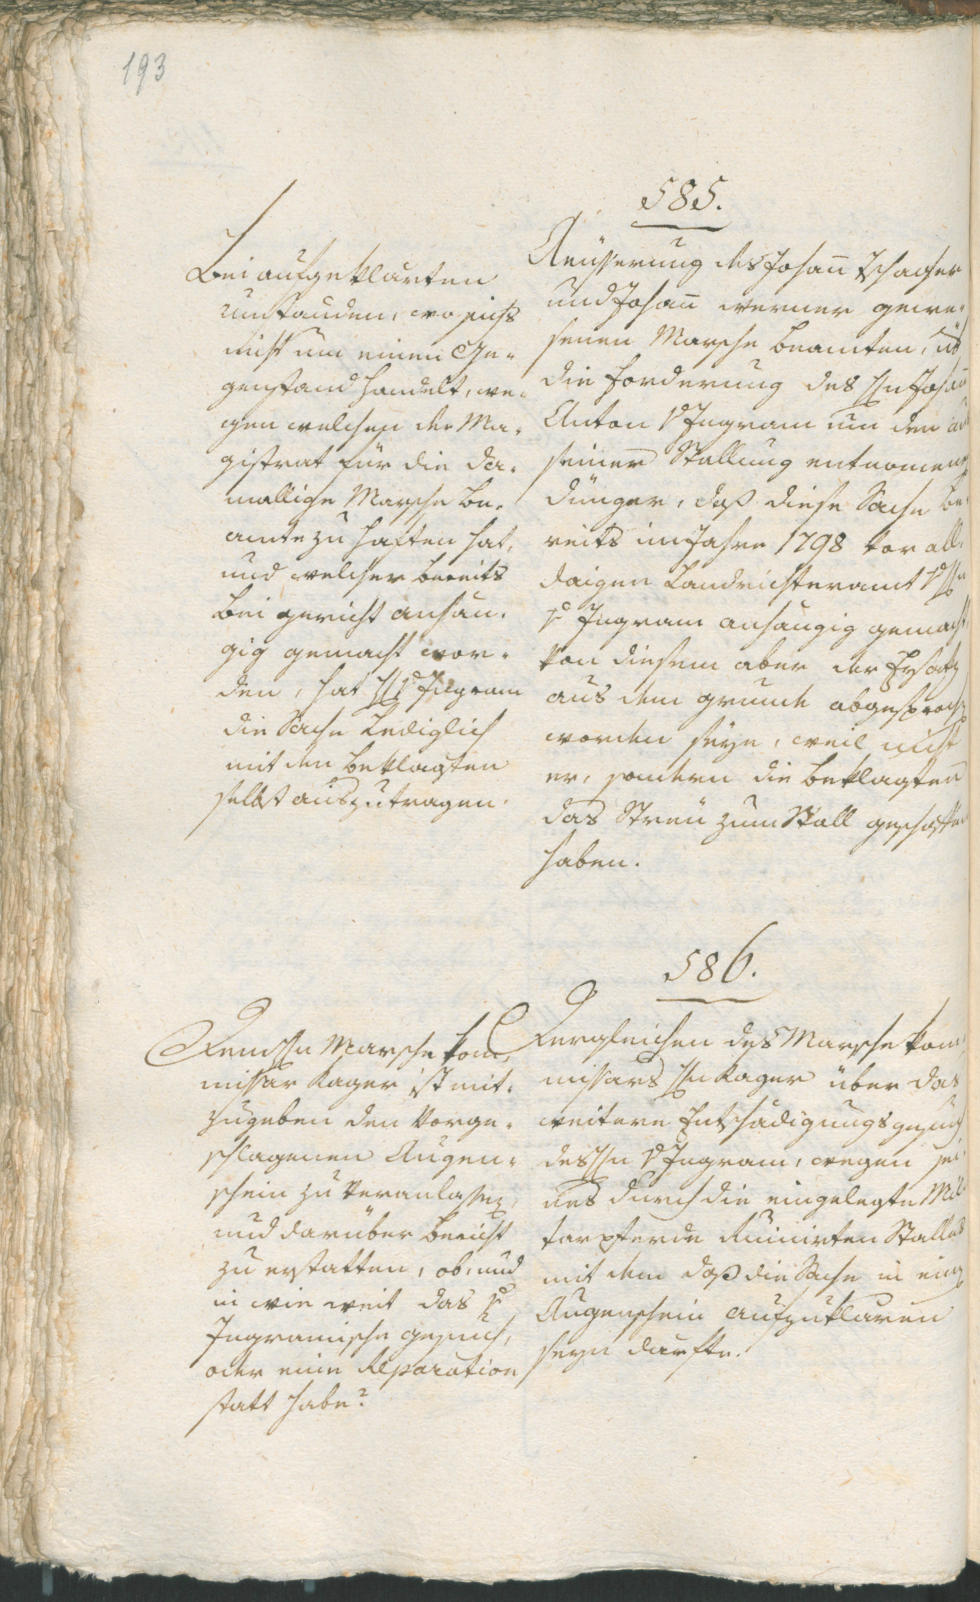 193
585.
Bei aufgeklärten
Umständen, wo sichs
nicht um einen Ge-
genstand handelt, we-
gen welchen der Ma-
gistrat für die da-
mallige Marsche be-
amte zu haften hat,
und welcher bereits
bei Gericht anhän-
gig gemacht wor-
den, hat H v Ingram
die Sache Lediglich
mit den beklagten
selbst auszutragen.
Aeüsserung des Johan̄ Tschager
und Johan̄ Werner gewe-
senen Marsche beamten, üb
die Forderung des Hn Johan̄
Anton v Ingram um den aus
seiner Stallung entnomenen
Dünger, daß diese Sache be
reits im Jahre 1798 vor all-
daigen Landrichteramt v Hn
v Ingram anhängig gemacht,
von diesem aber der Ersatz
aus dem Grunde abgesproch
worden seÿe, weil nicht
er, sondern die beklagten
das Streü zum Stall geschaffen
haben.
586.
Dem Hn Marsche Kom-
missär Kager ist mit-
zugeben den Vorge-
schlagenen Augen-
schein zu Veranlassen,
und darüber bericht
zu erstatten, ob, und
in wie weit das v
Ingramische Gesuch,
oder eine Reparation
statt habe?
Dergleichen des Marsche Kom
missärs Hn Kager über das
weitere Entschädigungsgesuch
des Hn v Ingram, wegen sei
nes durch die eingelegte Mili
tarpferde Ruinirten Stalles
mit dem daß die Sache in einen
Augenschein aufzuklären
seyn dürfte.